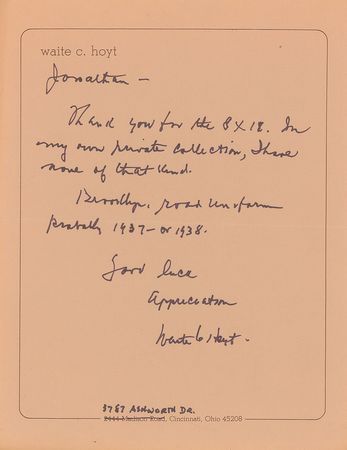 waite c. hoyt
Jonathan —
Thank you for the 8 X 10. In
my own private collection, I have
none of that kind.
Brooklyn, road uniform
probably 1937 - or 1938.
Good luck
Appreciation
Waite C Hoyt.
3787 ASHWORTH DR.
2444 Madison Road, Cincinnati, Ohio 45208